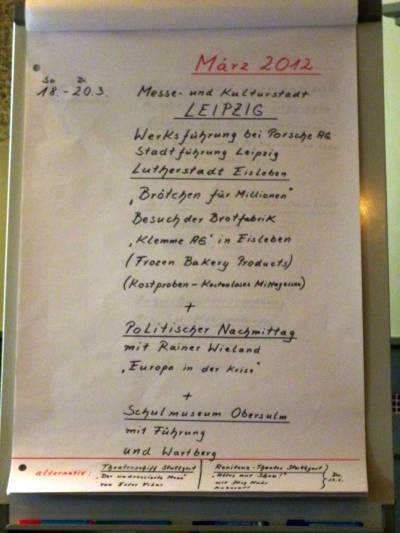 März 2012
So Di
18.-20.3. Messe- und Kulturstadt
LEIPZIG
Werksführung bei Porsche AG
Stadtführung Leipzig
Lutherstadt Eisleben
„Brötchen für Millionen“
Besuch der Brotfabrik
„Klemme AG“ in Eisleben
(Frozen Bakery Products)
(Kostproben - Kostenloses Mittagessen)
+
Politischer Nachmittag
mit Rainer Wieland
„Europa in der Krise“
+
Schulmuseum Obersulm
mit Führung
und Wartberg
alternativ: Theaterschiff Stuttgart
„Der
von
Renitenz-Theater Stuttgart
„Alles nur Show!“
mit